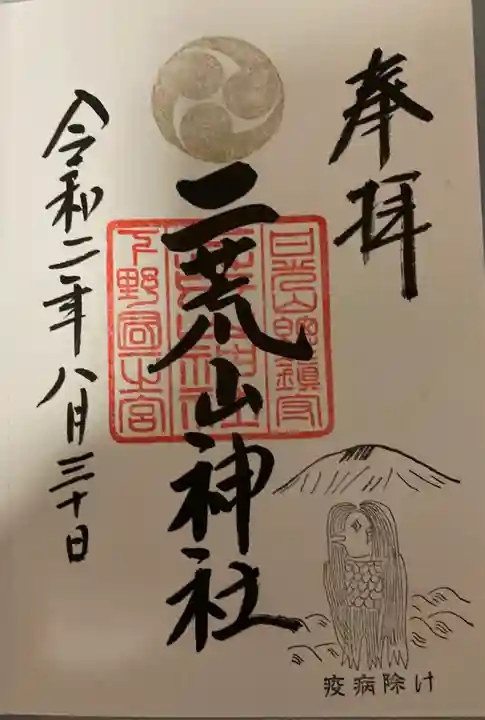 奉拝
二荒山神社
日光山總鎮守
下野國一之宮
令和二年八月三十日
疫病除け